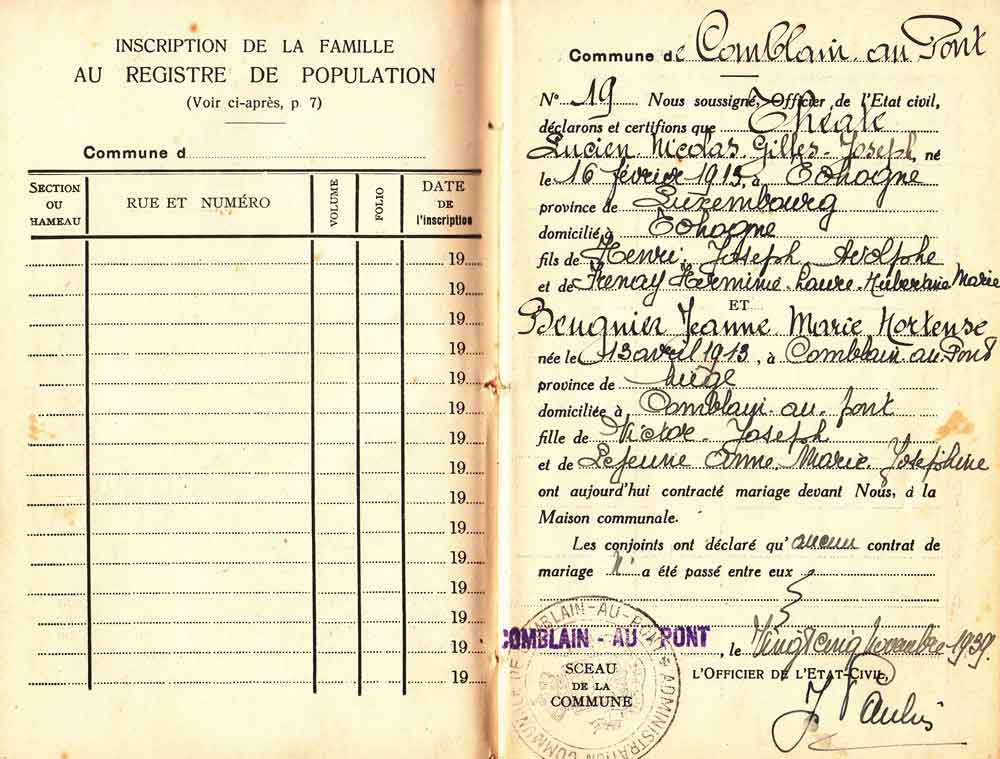 INSCRIPTION DE LA FAMILLE
AU REGISTRE DE POPULATION
(Voir ci-après, p 7)
Commune d
SECTION OU HAMEAU
RUE ET NUMÉRO
VOLUME
FOLIO
DATE DE l'inscription
19
19
19
19
19
19
19
19
19
19
19
19
19
19
19
Commune de Comblain au Pont
N° 19 Nous soussigné, Officier de l'Etat civil,
déclarons et certifions que Théate
Lucien Nicolas Gilles Joseph, né
le 16 février 1913, à Tohogne
province de Luxembourg
domicilié à Tohogne
fils de Henri Joseph Adolphe
et de Frenay Hermine Laure Hubertine Marie
ET
Beugnier Jeanne Marie Hortense
née le 13 avril 1913, à Comblain au Pont
province de Liège
domiciliée à Comblain au pont
fille de Victor Joseph
et de Lejeune Anne Marie Joséphine
ont aujourd'hui contracté mariage devant Nous, à la
Maison communale.
Les conjoints ont déclaré qu'aucun contrat de
mariage n' a été passé entre eux
COMBLAIN - AU - PONT, le Vingt cinq novembre 1939
SCEAU
DE LA
COMMUNE
COMBLAIN-AU-PONT ADMINISTRATION COMMUNALE DE
L'OFFICIER DE L'ETAT-CIVIL,